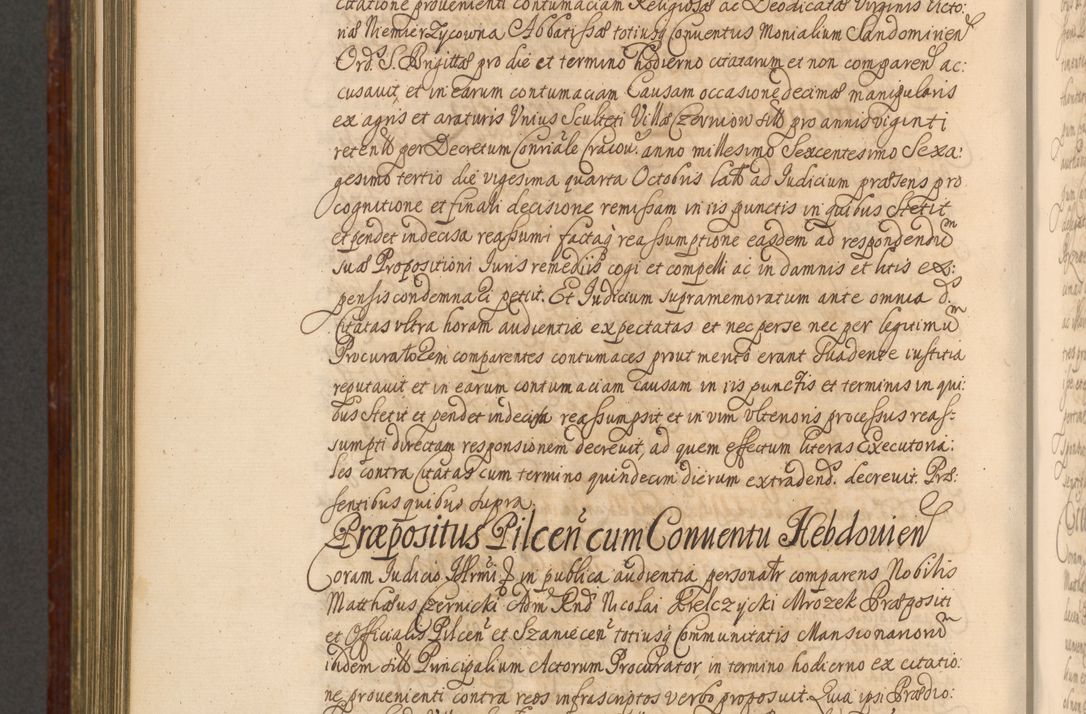 citatione provenienti contumaciam Religiosæ ac Deodicatæ Virginis Victo:
riæ Niemierzycowna Abbatissæ totiusq Conuentus Monialium Sandomirien
Ord. S. Brigittæ pro die et termino hodierno citatarum et non comparen ac:
cusauit, et in earum contumaciam Causam occasione decimæ manipularis
ex agris et araturis Unius Sculteti Villæ Czerniow sibi pro annis viginti
retent per Decretum Conriale Cracou. anno millesimo Sexcentesimo Sexa:
gesimo tertio die vigesima quarta Octobris latt ad Iudicium præsens pro
cognitione et finali decisione remissam in iis punctis in quibus Stetit
et pendet indecisa reassumi factaq reassumptione easdem ad respondendum
suæ Propositioni Iuris remediis cogi et compelli ac in damnis et litis ex:
pensis condemnari petiit. Et Iudicium supramemoratum ante omnia ds
Citatas vltra horam audientiæ expectatas et nec per se nec per legitimum
Procuratorem comparentes contumaces prout merito erant suadente iustitia
reputauit et in earum contumaciam causam in iis punctis et terminis in qui:
bus stetit et pendet indecisa reassumpsit et in vim vlterioris processus reas:
sumpti directam responsionem decreuit, ad quem effectum literas Executoria:
les contra Citatas cum termino quindecim dierum extradend. decrevit. Præ:
sentibus quibus supra.
Præpositus Pilcen cum Conuentu Hebdouien
Coram Iudicio in publica audientia personalr comparens Nobilis
Matthæus Czernicki Adm Rnd Nicolai Kielczycki Mrozek Præpositi
et Officialis Pilcen et Szaniecen totiusq Communitatis Mansionariorum
ibidem sibi Principalium Actorum Procurator, in termino hodierno ex citatio:
ne provenienti contra reos infrascriptos verbo proposuit. Quia ipsi Prædio: